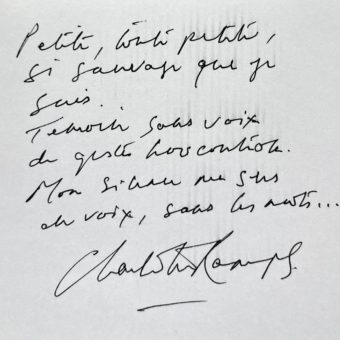 Petite, toute petite,
si sauvage que je
suis..
Témoin sans voix
de gestes hors contrôle.
Mon silence me sers
de voix, sans les mots...
Charlotte Rampling